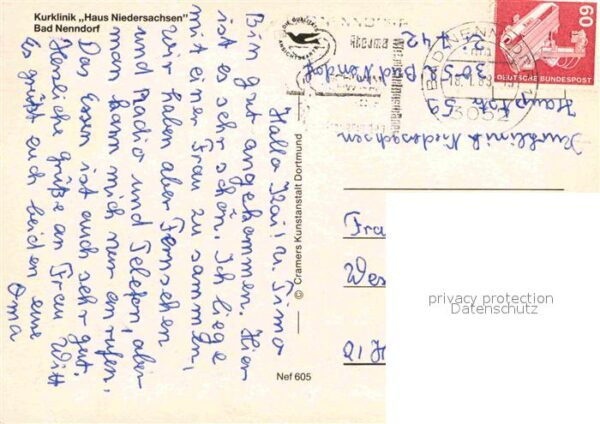 Kurklinik „Haus Niedersachsen"
Bad Nenndorf
Hallo Kai! u. Timo
Bin gut angekommen. Hier
ist es sehr schön. Ich liege
mit einer Frau zu sammen,
wir haben aber Fernsehen
und Radio und Telefon, aber
man kann mich nur anrufen,
Das Essen ist auch sehr gut.
Herzliche grüße an Frau Witt
Es grüßt euch beiden eine
Oma
© Cramers Kunstanstalt Dortmund
Nef 605
Kurklinik Niedersachsen
Haupstr 59
3052 Bad Nenndorf
742
BAD NENNDORF
3052
60
DEUTSCHE BUNDESPOST
Frau
Wes
privacy protection
Datenschutz